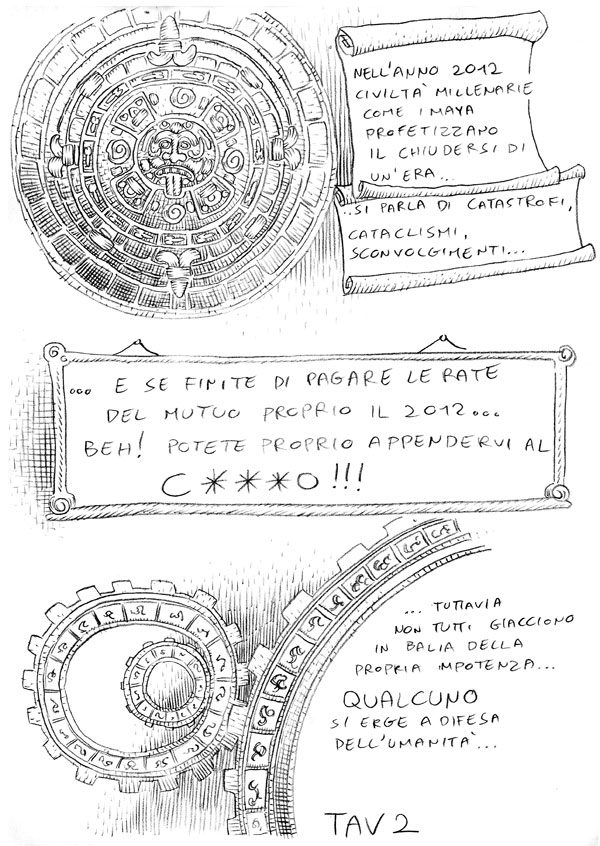 NELL'ANNO 2012
CIVILTA' MILLENARIE
COME I MAYA
PROFETIZZANO
IL CHIUDERSI DI
UN'ERA...
..SI PARLA DI CATASTROFI,
CATACLISMI,
SCONVOLGIMENTI...
... E SE FINITE DI PAGARE LE RATE
DEL MUTUO PROPRIO IL 2012...
BEH! POTETE PROPRIO APPENDERVI AL
C***O!!!
... TUTTAVIA
NON TUTTI GIACCIONO
IN BALIA DELLA
PROPRIA IMPOTENZA...
QUALCUNO
SI ERGE A DIFESA
DELL'UMANITA'...
TAV 2